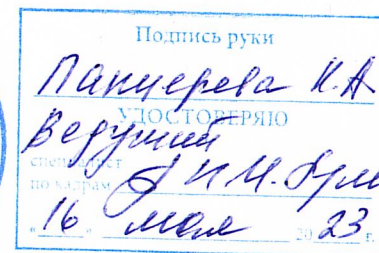 Подпись руки
Панцерева К.А
УДОСТОВЕРЯЮ
Ведущий
специалист
по кадрам И.И.
"16" мая 2023 г.